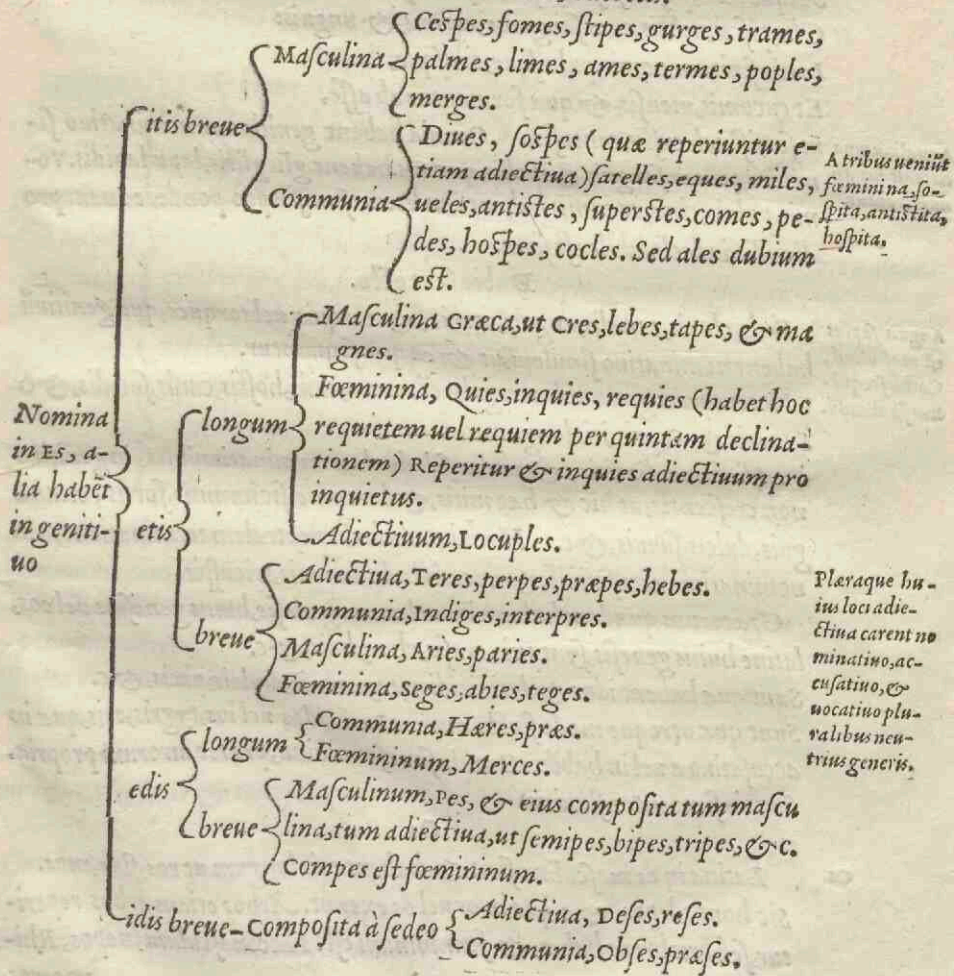 Cespes, fomes, ſtipes, gurges, trames,
Maſculina palmes, limes, ames, termes, poples,
merges.
itis breue
Diues, ſoſpes (quæ reperiuntur e-
tiam adiectiua) ſatelles, eques, miles,
Communia ueles, antiſtes, ſuperſtes, comes, pe-
des, hoſpes, cocles. Sed ales dubium
eſt.
A tribus ueniūt
fœminina, ſo-
ſpita, antiſtita,
hoſpita.
Nomina
in ES, a-
lia habēt
in geniti-
uo
etis
longum
Maſculina Græca, ut Cres, lebes, tapes, & ma
gnes.
Fœminina, Quies, inquies, requies (habet hoc
requietem uel requiem per quintam declina-
tionem) Reperitur & inquies adiectiuum pro
inquietus.
Adiectiuum, Locuples.
breue
Adiectiua, Teres, perpes, præpes, hebes.
Communia, Indiges, interpres.
Maſculina, Aries, paries.
Fœminina, Seges, abies, teges.
Plæraque hu-
ius loci adie-
ctiua carent no
minatiuo, ac-
cuſatiuo, &
uocatiuo plu-
ralibus neu-
trius generis.
edis
longum
Communia, Hæres, præs.
Fœmininum, Merces.
breue
Maſculinum, Pes, & eius compoſita tum maſcu
lina, tum adiectiua, ut ſemipes, bipes, tripes, & c.
Compes eſt fœmininum.
idis breue- Compoſita à ſedeo
Adiectiua, Deſes, reſes.
Communia, Obſes, præſes.